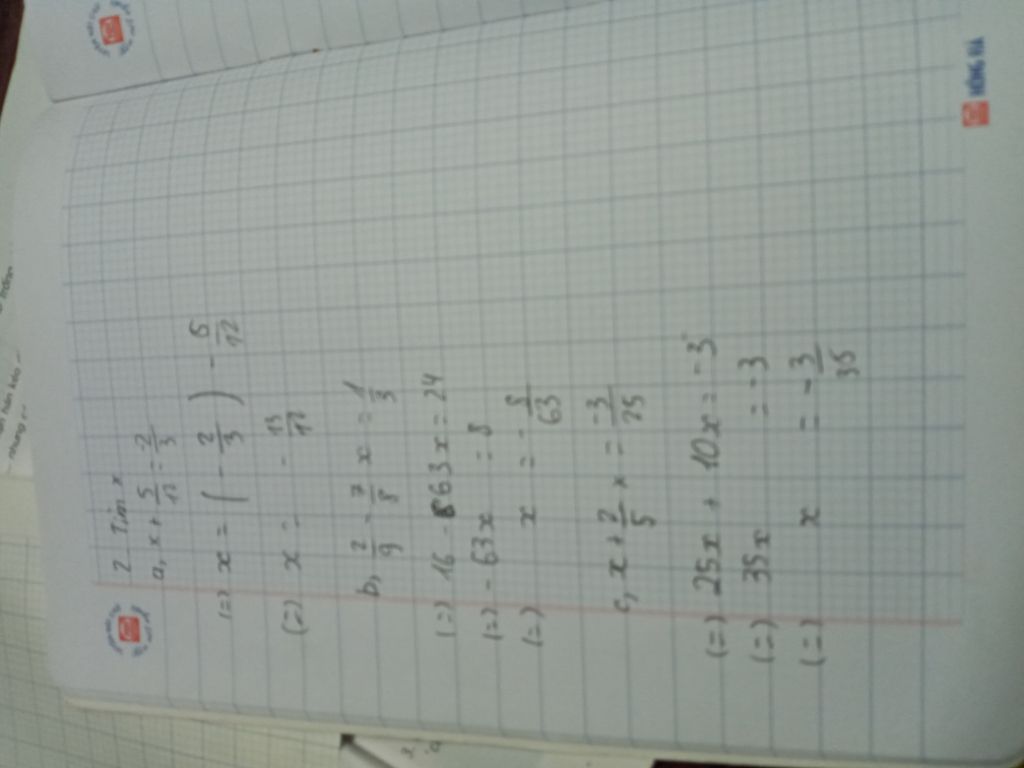 2 Tìm x
a, x + 5/12 = -2/3
(=) x = ( - 2/3 ) - 5/12
(=) x = - 13/12
b, 2/9 - 7/8 x = 1/3
(=) 16 - 63x = 24
(=) - 63x = 8
(=) x = - 8/63
c, x + 2/5 x = -3/25
(=) 25x + 10x = -3
(=) 35x = -3
(=) x = - 3/35
HỒNG HÀ